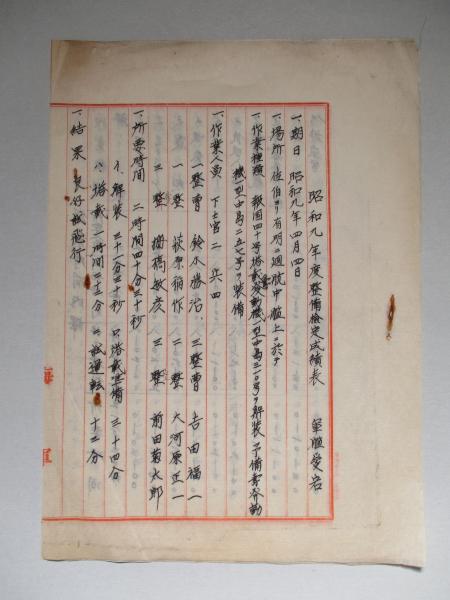 昭和九年度整備検定成績表
軍艦愛宕
一、期日 昭和九年四月四日
一、場所 佐伯ヨリ有明ニ廻航中艦上ニ於テ
一、作業種類 報国四十号搭載発動機型中島三一〇号ヲ解装シ予備寿発動
機一型中島二五七号ヲ装備
一、作業人員 下士官二 兵六四
一整曹 鈴木勝治 三整曹 吉田福一
一整 萩原稍作 二整 大河原正二
三整 敏彦 三整 前田菊太郎
一、所要時間 二時間四十分三十秒
イ、解装 三十一分三十秒 ロ、搭載準備 三十四分
ハ、搭載 一時間二十三分 ニ、試運転 十二分
一、結果 良好試飛行
海軍